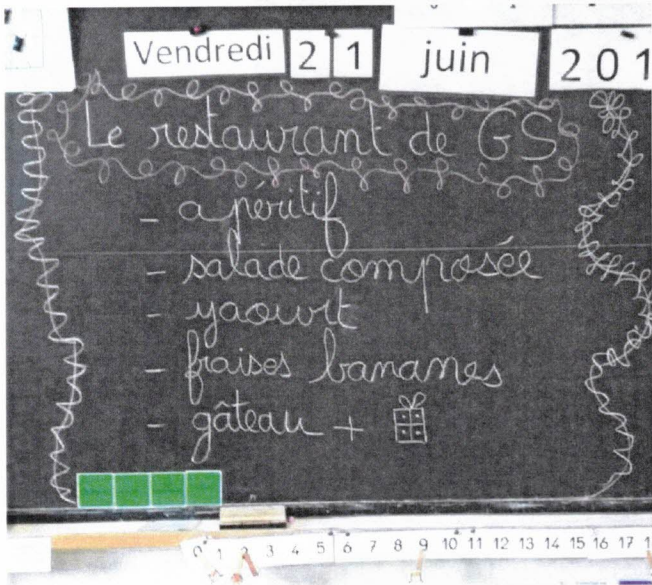 Vendredi 21 juin 201
Le restaurant de GS
- apéritif
- salade composée
- yaourt
- fraises bananes
- gâteau +
0 1 2 3 4 5 6 7 8 9 10 11 12 13 14 15 16 17 1